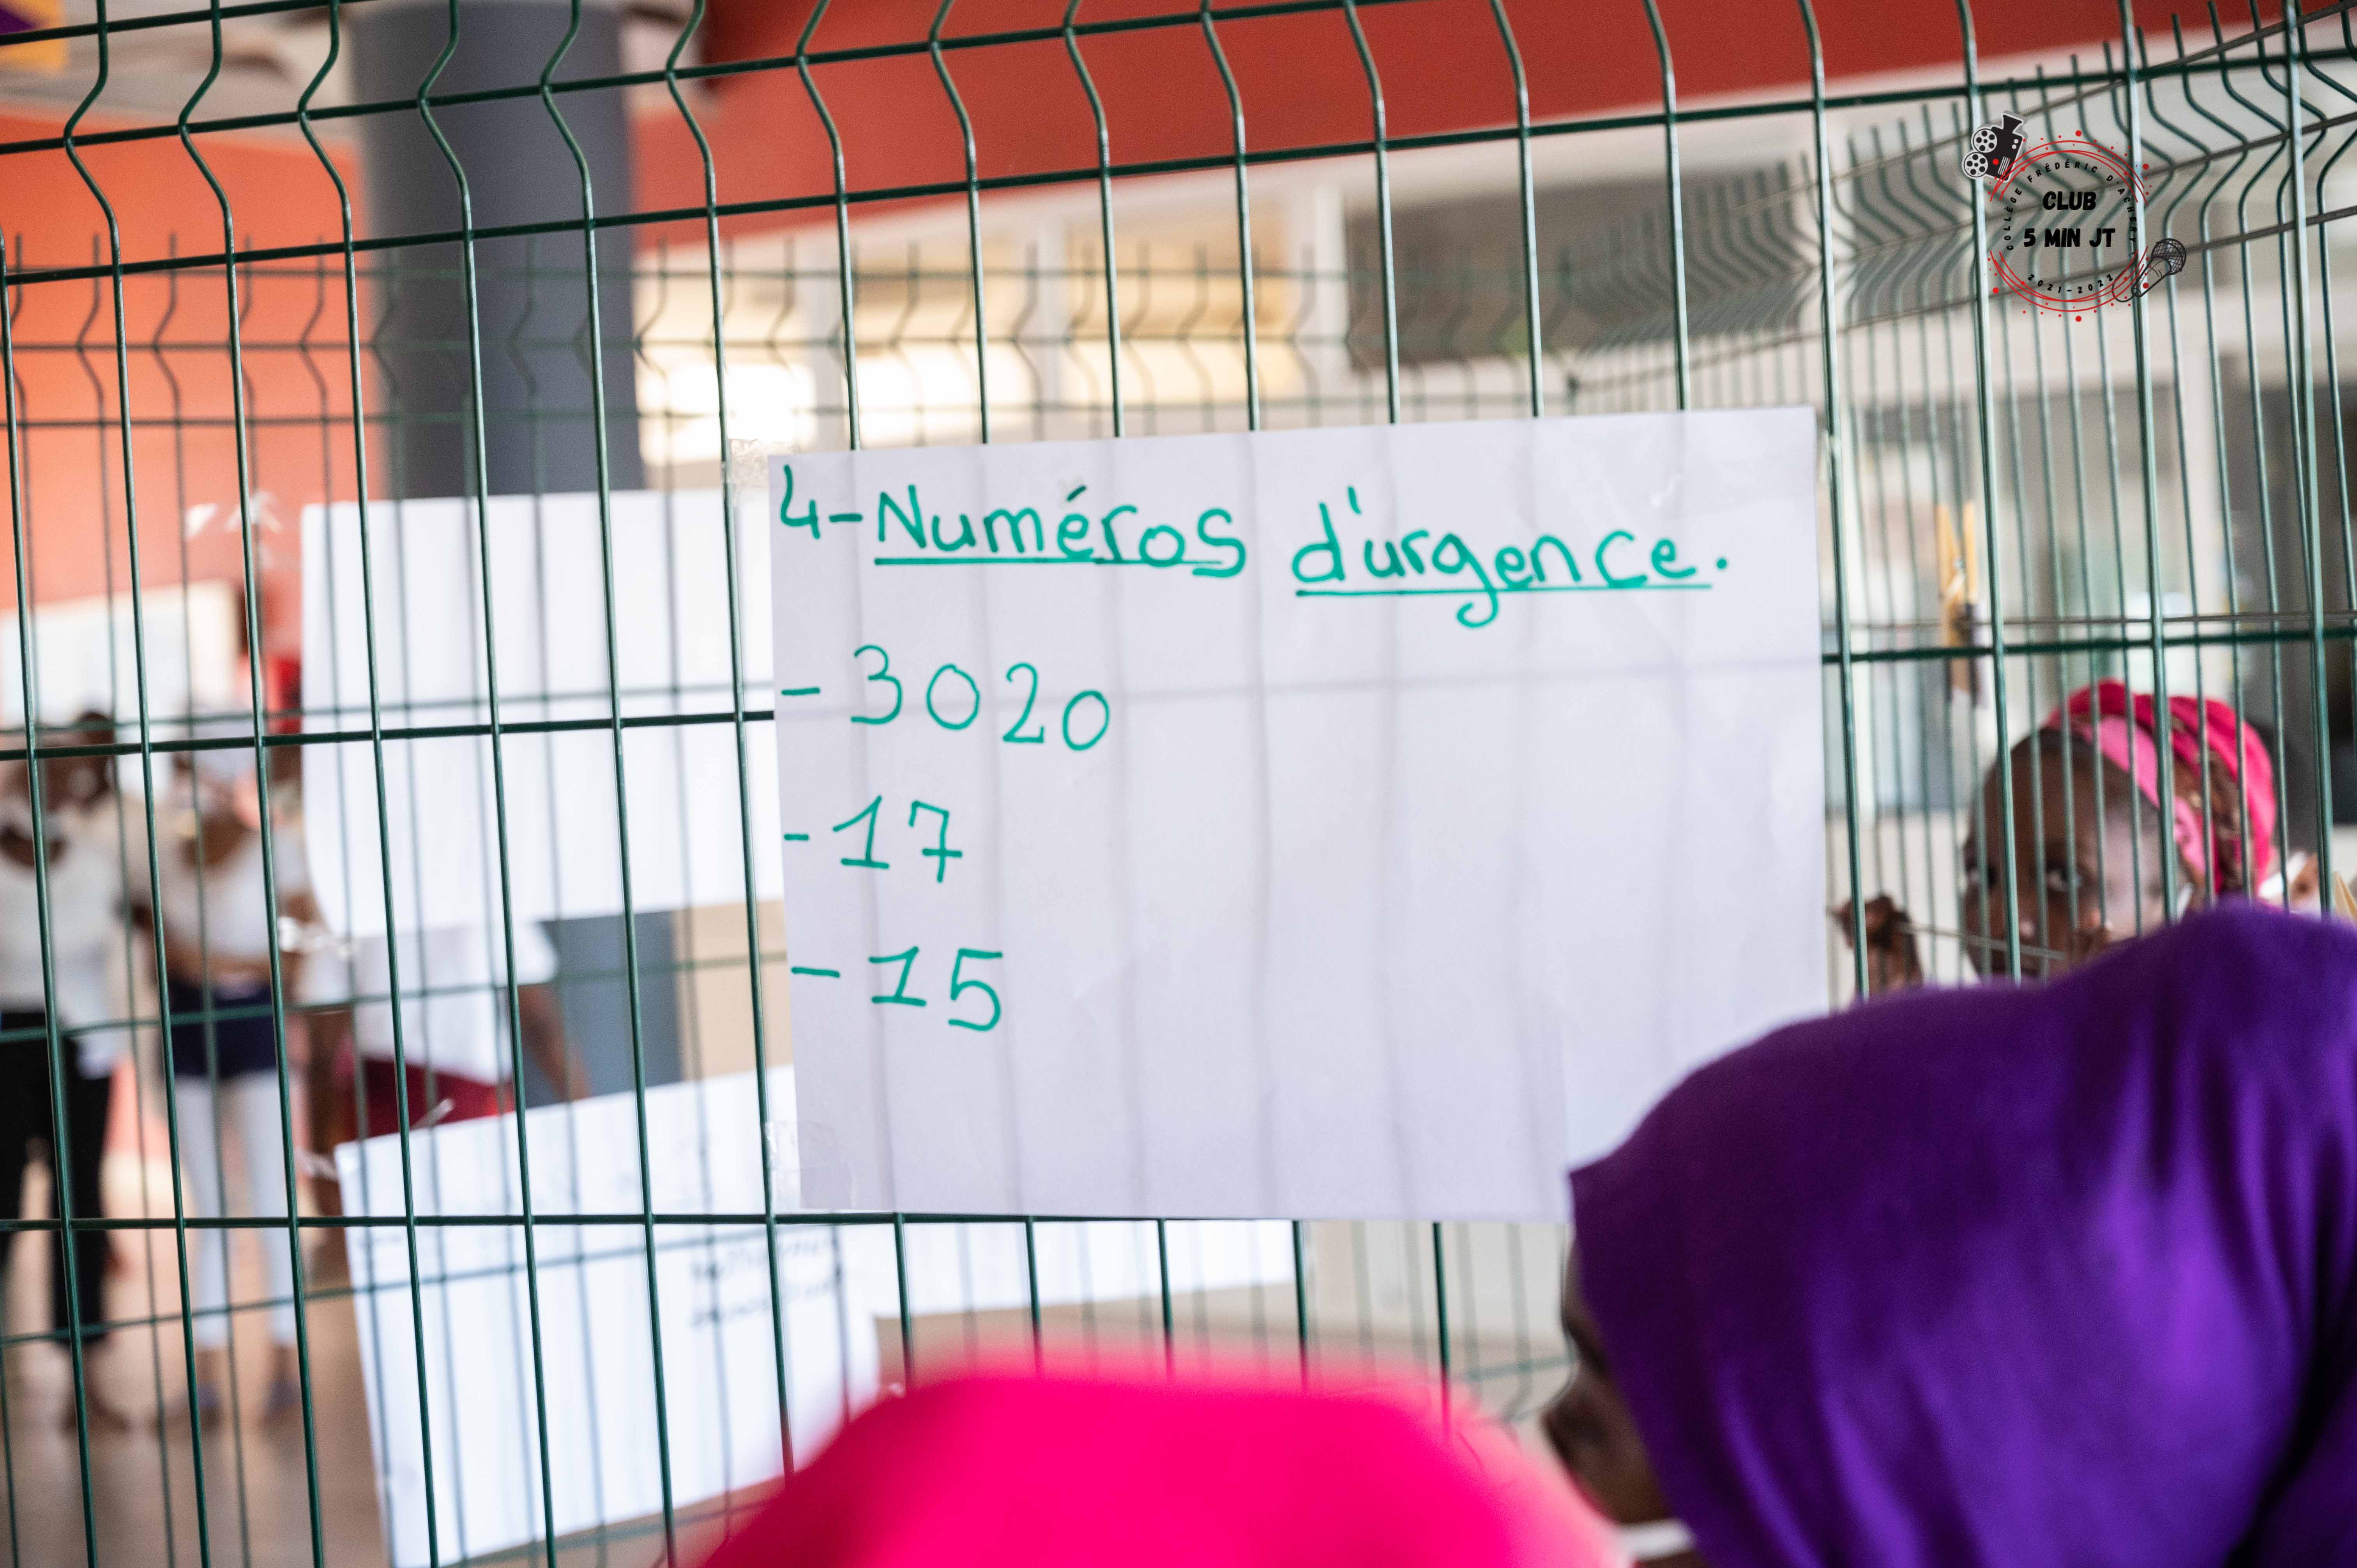 COLLÈGE FRÉDÉRIC D'ACHERY
CLUB
5 MIN JT
2021-2022
4-Numéros d'urgence.
- 3020
- 17
- 15